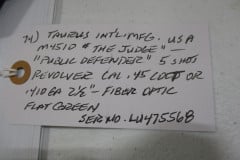 74) TAURUS INT'L MFG. USA
M4510 "THE JUDGE" —
"PUBLIC DEFENDER" 5 SHOT
REVOLVER CAL. .45 COLT OR
.410GA 2½" - FIBER OPTIC
FLAT GREEN
SER NO. LU475568